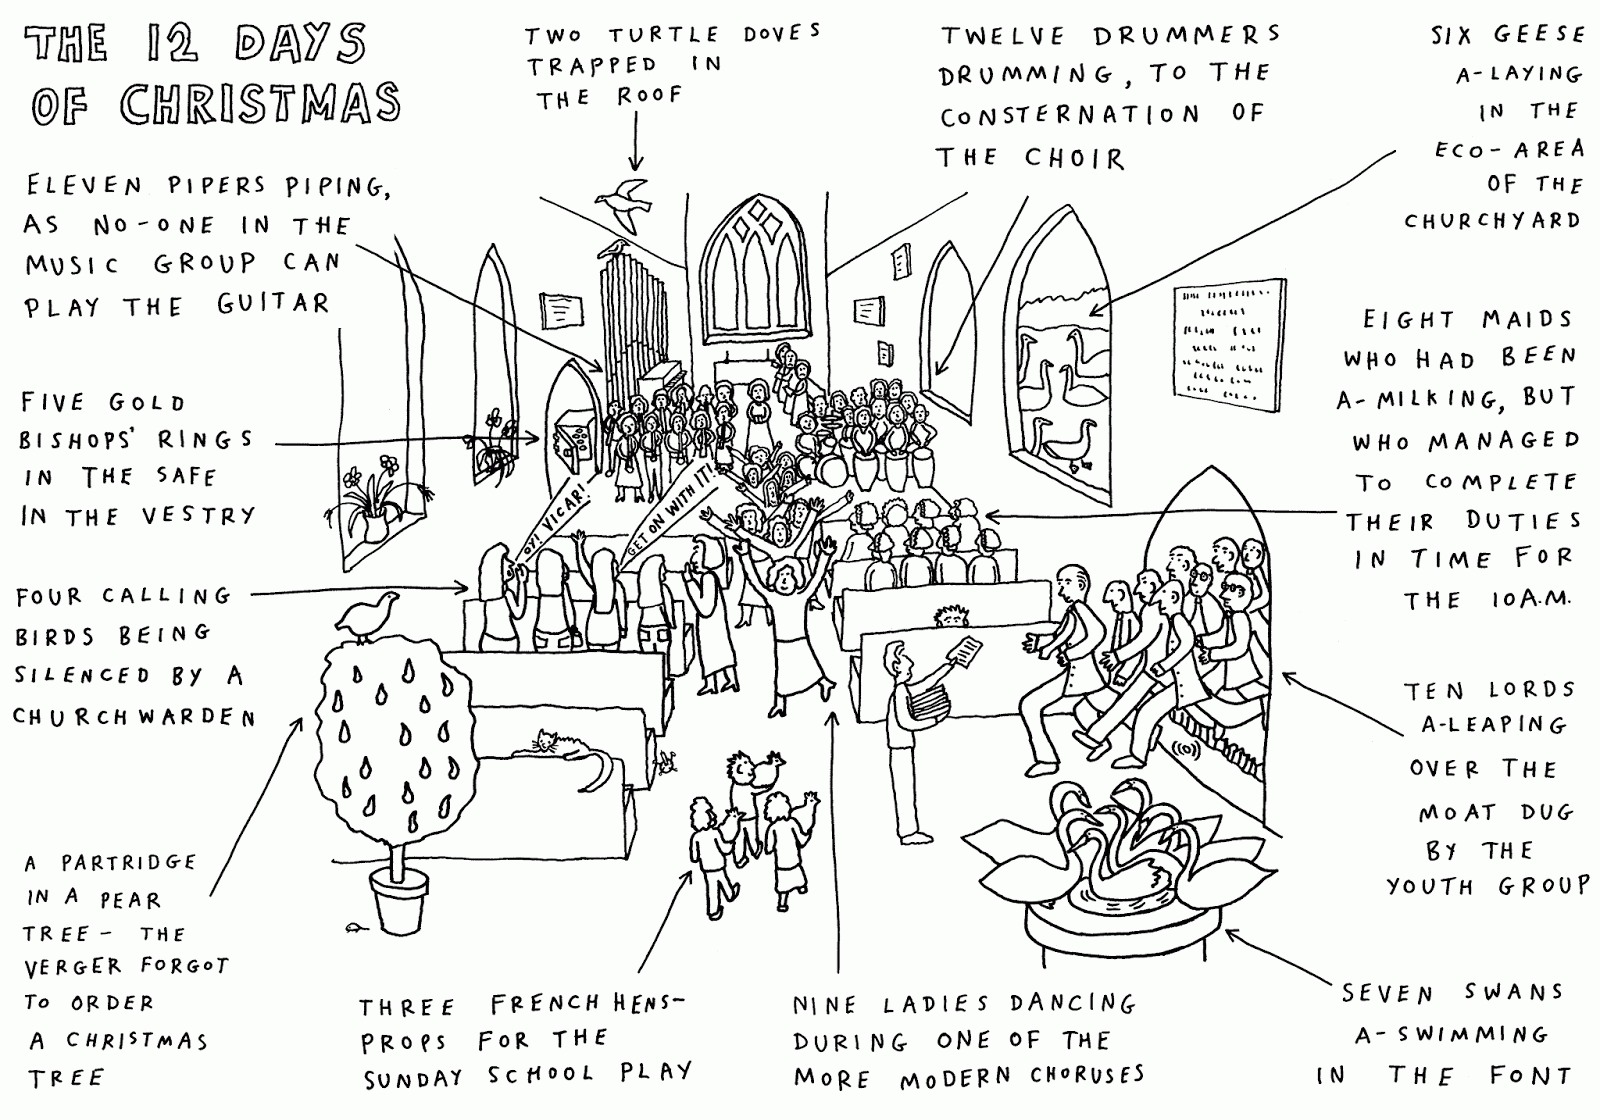 THE 12 DAYS
OF CHRISTMAS
TWO TURTLE DOVES
TRAPPED IN
THE ROOF
TWELVE DRUMMERS
DRUMMING, TO THE
CONSTERNATION OF
THE CHOIR
SIX GEESE
A-LAYING
IN THE
ECO-AREA
OF THE
CHURCHYARD
ELEVEN PIPERS PIPING,
AS NO-ONE IN THE
MUSIC GROUP CAN
PLAY THE GUITAR
EIGHT MAIDS
WHO HAD BEEN
A-MILKING, BUT
WHO MANAGED
TO COMPLETE
THEIR DUTIES
IN TIME FOR
THE 10A.M.
FIVE GOLD
BISHOPS' RINGS
IN THE SAFE
IN THE VESTRY
OY! VICAR!
GET ON WITH IT!
FOUR CALLING
BIRDS BEING
SILENCED BY A
CHURCHWARDEN
TEN LORDS
A-LEAPING
OVER THE
MOAT DUG
BY THE
YOUTH GROUP
A PARTRIDGE
IN A PEAR
TREE- THE
VERGER FORGOT
TO ORDER
A CHRISTMAS
TREE
THREE FRENCH HENS-
PROPS FOR THE
SUNDAY SCHOOL PLAY
NINE LADIES DANCING
DURING ONE OF THE
MORE MODERN CHORUSES
SEVEN SWANS
A-SWIMMING
IN THE FONT